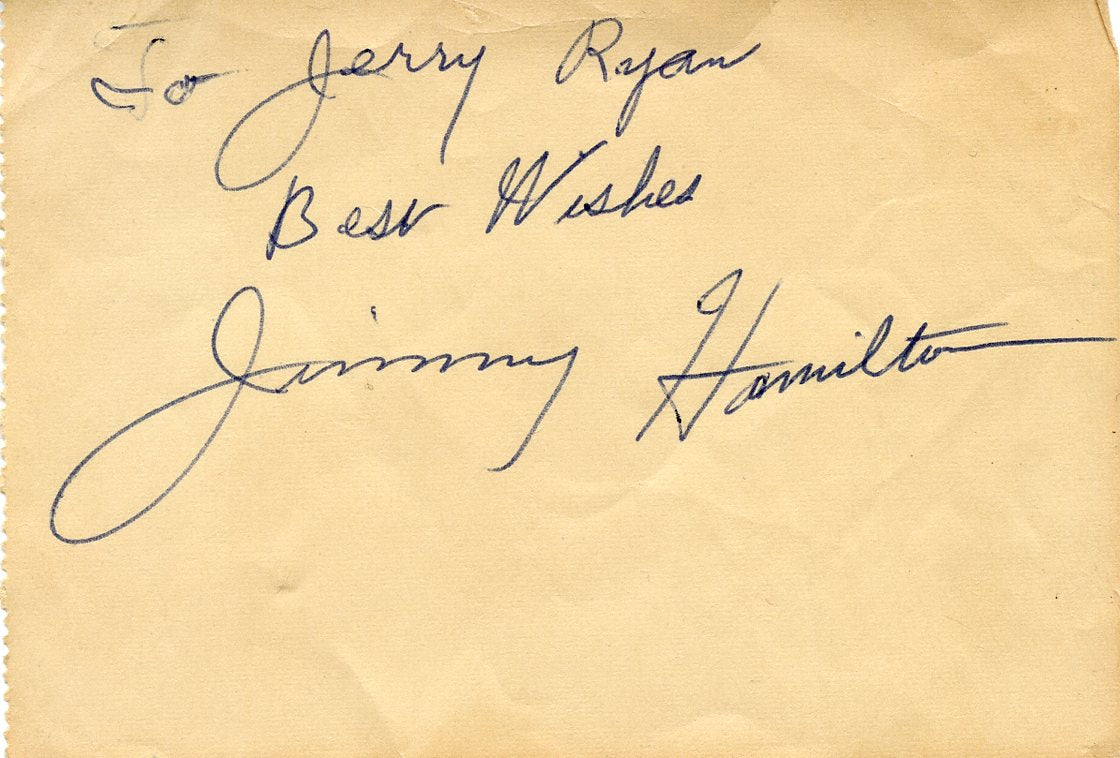 To Jerry Ryan
Best Wishes
Jimmy Hamilton